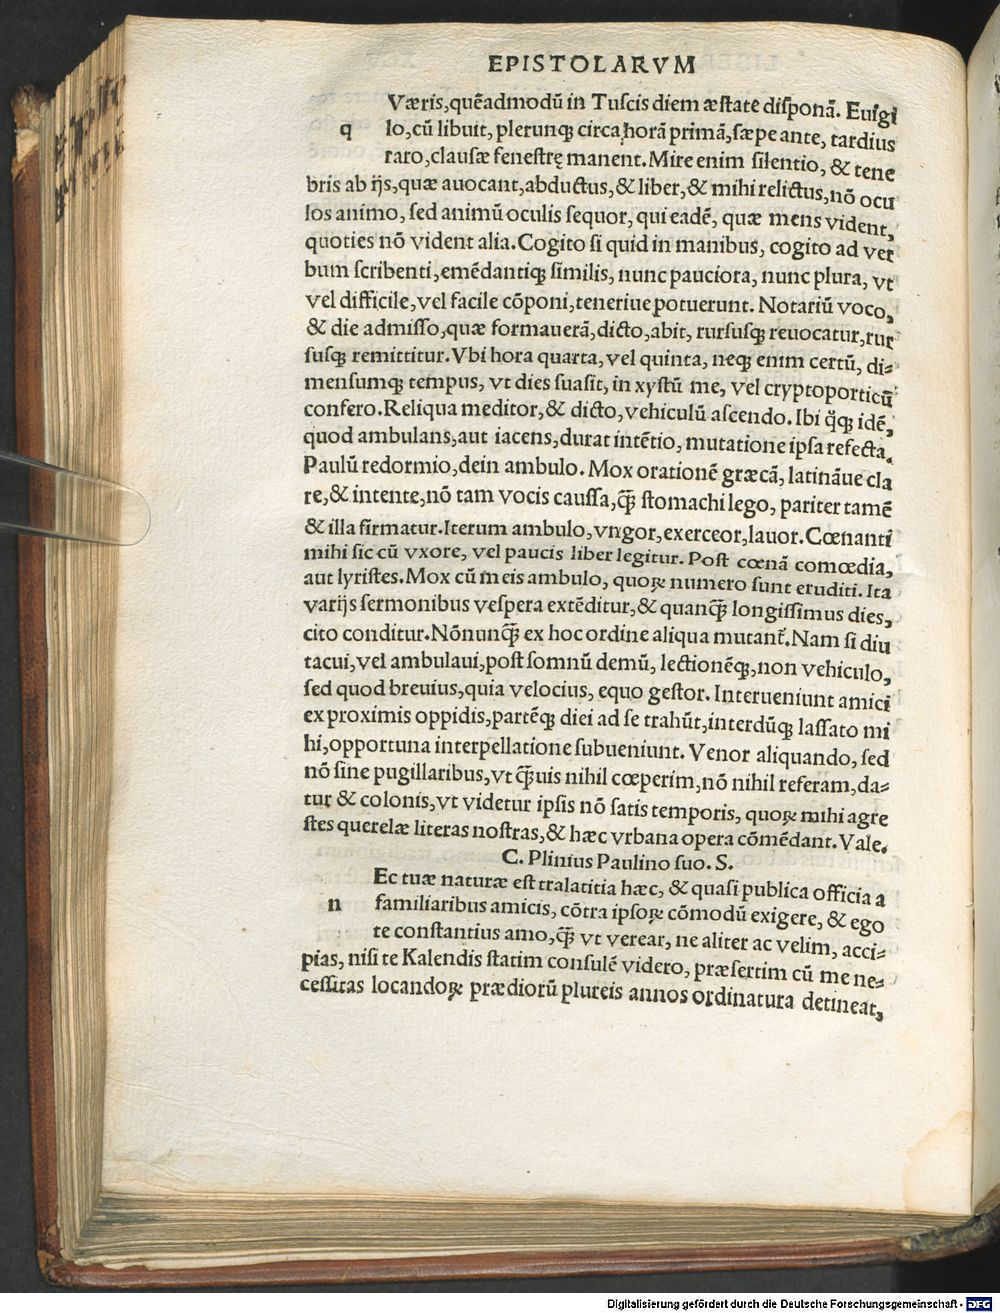 EPISTOLARVM
Væris,quẽadmodũ in Tuſcis diem æſtate diſponã. Euigi
q lo,cũ libuit, plerunqꝫ circa horã primã,ſæpe ante, tardius
raro,clauſæ feneſtrę manent.Mire enim ſilentio, & tene
bris ab ijs,quæ auocant,abductus,& liber,& mihi relictus,nõ ocu
los animo, ſed animũ oculis ſequor, qui eadẽ, quæ mens vident,
quoties nõ vident alia.Cogito ſi quid in manibus, cogito ad ver
bum ſcribenti,emẽdantiqꝫ ſimilis, nunc pauciora, nunc plura, vt
vel difficile,vel facile cõponi,teneriue potuerunt. Notariũ voco,
& die admiſſo,quæ formauerã,dicto,abit, rurſuſqꝫ reuocatur,rur
ſuſqꝫ remittitur.Vbi hora quarta,vel quinta, neqꝫ enim certũ, di⸗
menſumqꝫ tempus, vt dies ſuaſit, in xyſtũ me, vel cryptoporticũ
confero.Reliqua meditor,& dicto,vehiculũ aſcendo.Ibi q̃qꝫ idẽ,
quod ambulans,aut iacens,durat intẽtio, mutatione ipſa refecta.
Paulũ redormio,dein ambulo. Mox orationẽ græcã, latinãue cla
re,& intente,nõ tam vocis cauſſa,q̃ꝫ ſtomachi lego, pariter tamẽ
& illa firmatur.Iterum ambulo,vngor,exerceor,lauor. Cœnanti
mihi ſic cũ vxore, vel paucis liber legitur. Poſt cœnã comœdia,
aut lyriſtes.Mox cũ meis ambulo, quoꝝ numero ſunt eruditi. Ita
varijs ſermonibus veſpera extẽditur,& quanq̃ꝫ longiſſimus dies,
cito conditur.Nõnunq̃ꝫ ex hoc ordine aliqua mutant᷑.Nam ſi diu
tacui,vel ambulaui,poſt ſomnũ demũ, lectionẽqꝫ,non vehiculo,
ſed quod breuius,quia velocius, equo geſtor. Interueniunt amici
ex proximis oppidis,partẽqꝫ diei ad ſe trahũt,interdũqꝫ laſſato mi
hi,opportuna interpellatione ſubueniunt. Venor aliquando, ſed
nõ ſine pugillaribus,vt q̃ꝫuis nihil cœperim,nõ nihil referam,da⸗
tur & colonis,vt videtur ipſis nõ ſatis temporis, quoꝝ mihi agre
ſtes querelæ literas noſtras,& hæc vrbana opera cõmẽdant. Vale.
C. Plinius Paulino ſuo. S.
Ec tuæ naturæ eſt tralatitia hæc, & quaſi publica officia a
n familiaribus amicis, cõtra ipſoꝝ cõmodũ exigere, & ego
te conſtantius amo,q̃ꝫ vt verear, ne aliter ac velim, acci⸗
pias, niſi te Kalendis ſtatim conſulẽ videro, præſertim cũ me ne⸗
ceſſitas locandoꝝ prædiorũ plureis annos ordinatura detineat,
Digitalisierung gefördert durch die Deutsche Forschungsgemeinschaft - DFG